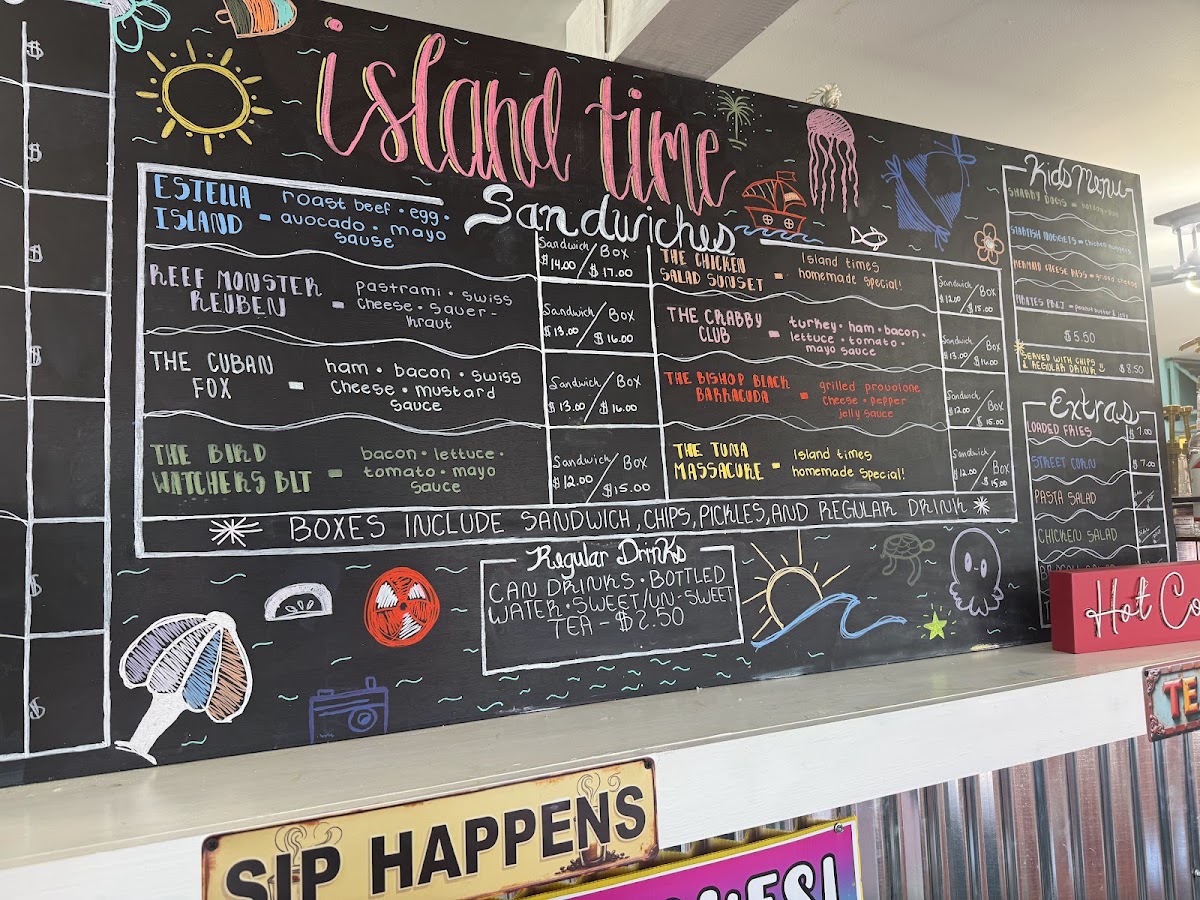 island time
Sandwiches
ESTELLA
ISLAND
-
roast beef • egg •
avocado • mayo
sause
Sandwich / Box
$14.00 / $17.00
REEF MONSTER
REUBEN
-
pastrami • swiss
cheese • sauer-
kraut
Sandwich / Box
$13.00 / $16.00
THE CUBAN
FOX
-
ham • bacon • swiss
cheese • mustard
sauce
Sandwich / Box
$13.00 / $16.00
THE BIRD
WATCHERS BLT
-
bacon • lettuce •
tomato • mayo
sauce
Sandwich / Box
$12.00 / $15.00
THE CHICKEN
SALAD SUNSET
-
Island times
homemade special!
Sandwich / Box
$12.00 / $15.00
THE CRABBY
CLUB
-
turkey • ham • bacon •
lettuce • tomato •
mayo sauce
Sandwich / Box
$13.00 / $16.00
THE BISHOP BLACK
BARRACUDA
-
grilled provolone
cheese • pepper
jelly sauce
Sandwich / Box
$12.00 / $15.00
THE TUNA
MASSACURE
-
Island times
homemade special!
Sandwich / Box
$12.00 / $15.00
BOXES INCLUDE SANDWICH, CHIPS, PICKLES, AND REGULAR DRINK
Regular Drinks
CAN DRINKS • BOTTLED
WATER • SWEET/UN-SWEET
TEA - $2.50
Kids Menu
SHARKY DOGS =
STARFISH NUGGETS = chicken nuggets
MERMAID CHEESE KISS = grilled cheese
PIRATES PB&J = peanut butter & jelly
$5.50
SERVED WITH CHIPS
& REGULAR DRINK
$8.50
Extras
LOADED FRIES
$7.00
STREET CORN
$7.00
PASTA SALAD
CHICKEN SALAD
Hot Co
TE
SIP HAPPENS
$
$
$
$
$
$